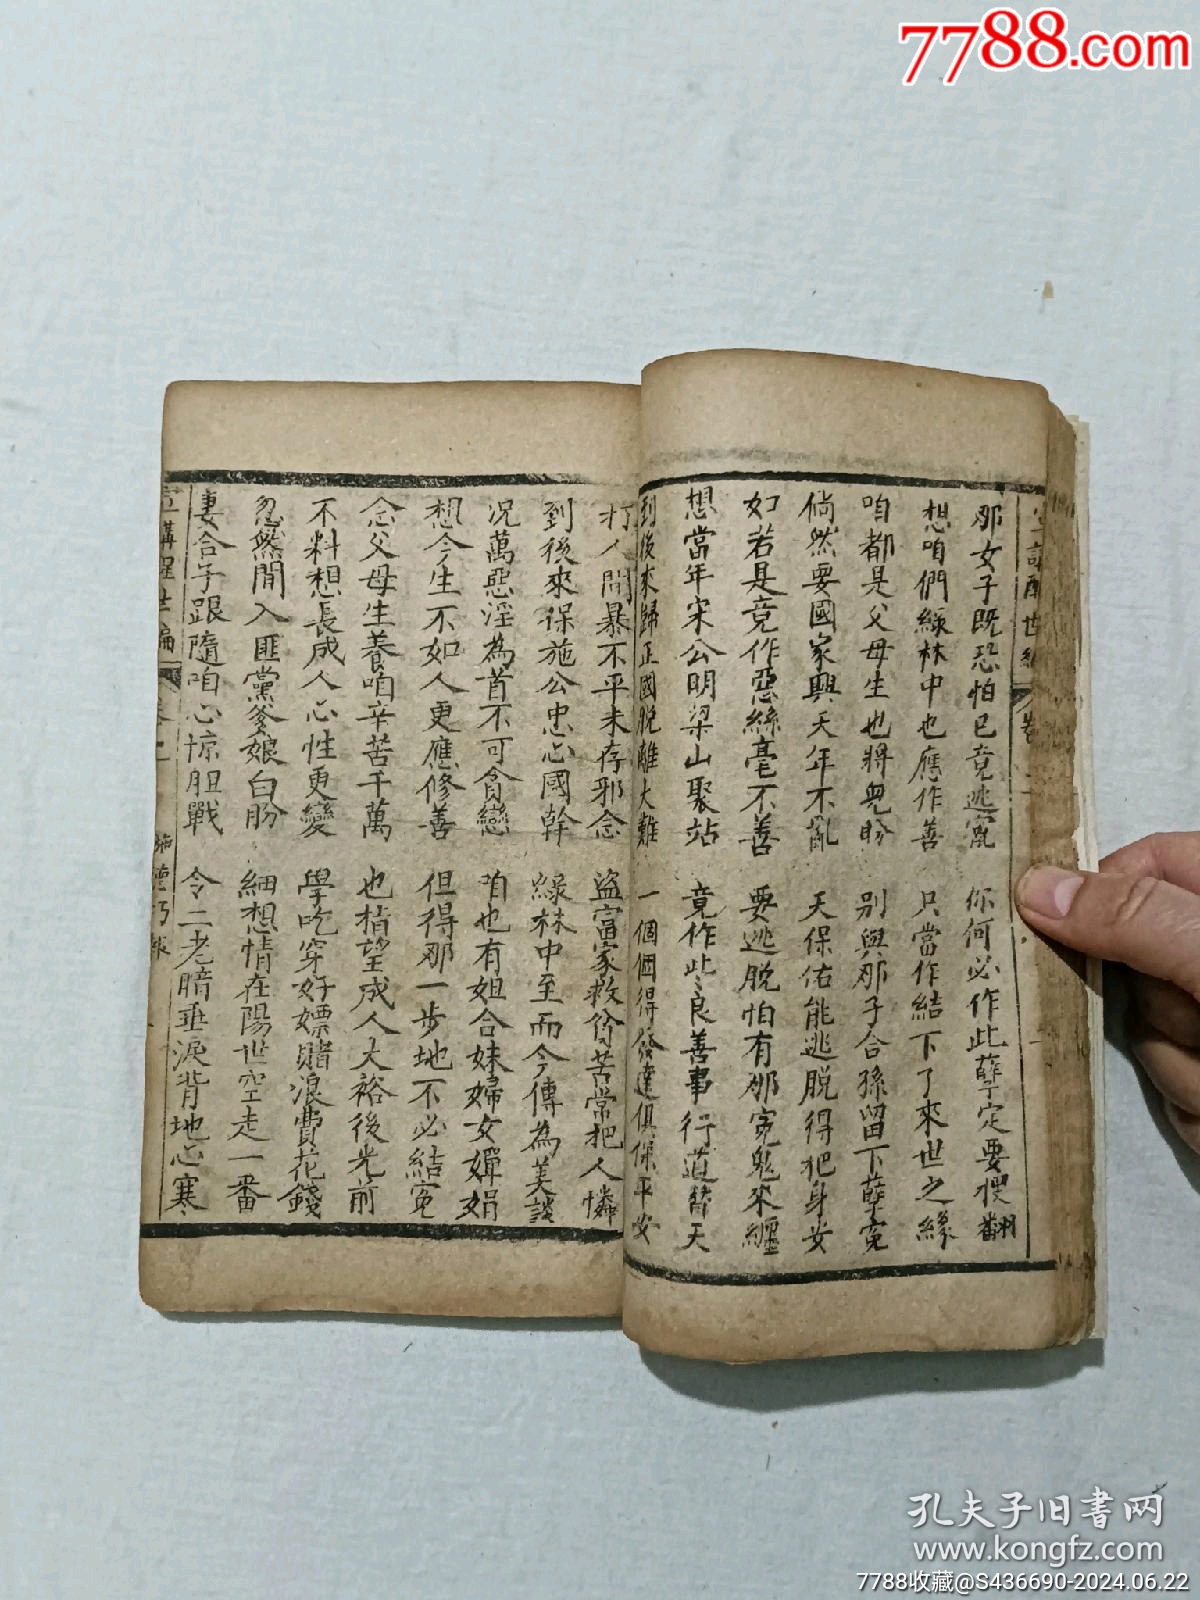 7788.com
那女子既恐怕已竟逃竄 你何必作此孽定要搜翻
想咱們綠林中也應作善 只當作結下了來世之緣
咱都是父母生也將兒盼 別與那子合孫留下孽寃
倘然要國家興天年不亂 天保佑能逃脫得把身安
如若是竟作惡絲毫不善 要逃脫怕有那寃鬼來纏
想當年宋公明梁山聚站 竟作此良善事行道替天
到後來歸正國脫離大難 一個個得發達俱保平安
打人間暴不平未存邪念 盜富家救貧苦常把人憐
到後來保施公忠心國幹 綠林中至而今傳為美談
況萬惡淫為首不可貪戀 咱也有姐合妹婦女嬋娟
想今生不如人更應修善 但得那一步地不必結寃
念父母生養咱辛苦千萬 也指望成人大裕後光前
不料想長成人心性更變 學吃穿好嫖賭浪費花錢
忽然間入匪黨爹娘白盼 細想情在陽世空走一番
妻合子跟隨咱心惊胆戰 令二老暗垂淚背地心寒
宣講醒世編
孔夫子旧书网
www.kongfz.com
7788收藏@S436690-2024.06.22